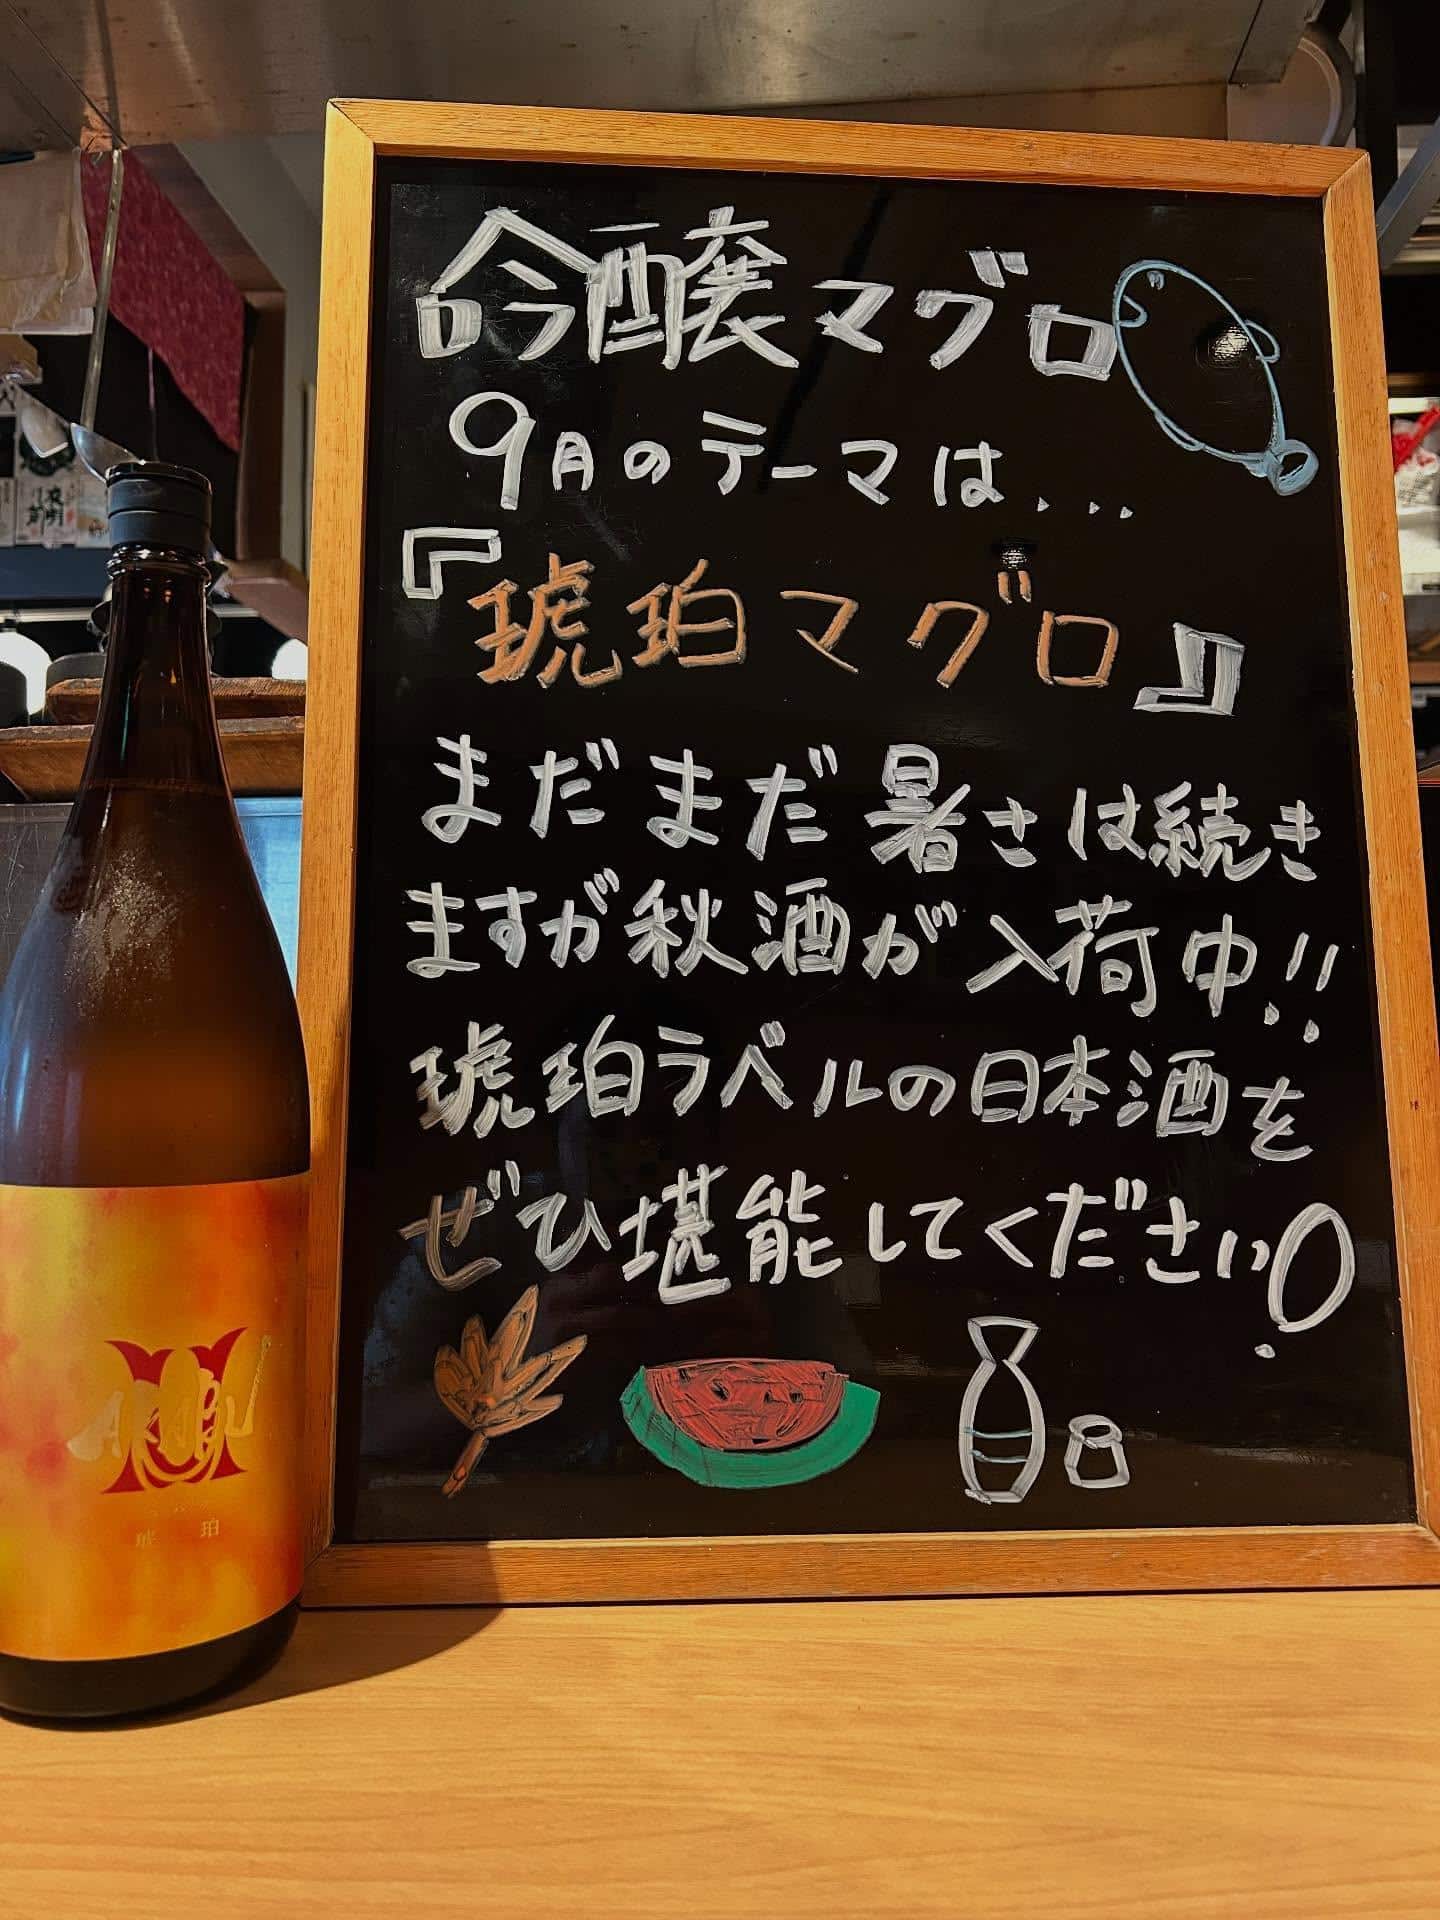 吟醸マグロ
9月のテーマは...
『琥珀マグロ』
まだまだ暑さは続き
ますが秋酒が入荷中!!
琥珀ラベルの日本酒を
ぜひ堪能してください!
AKABU
琥珀